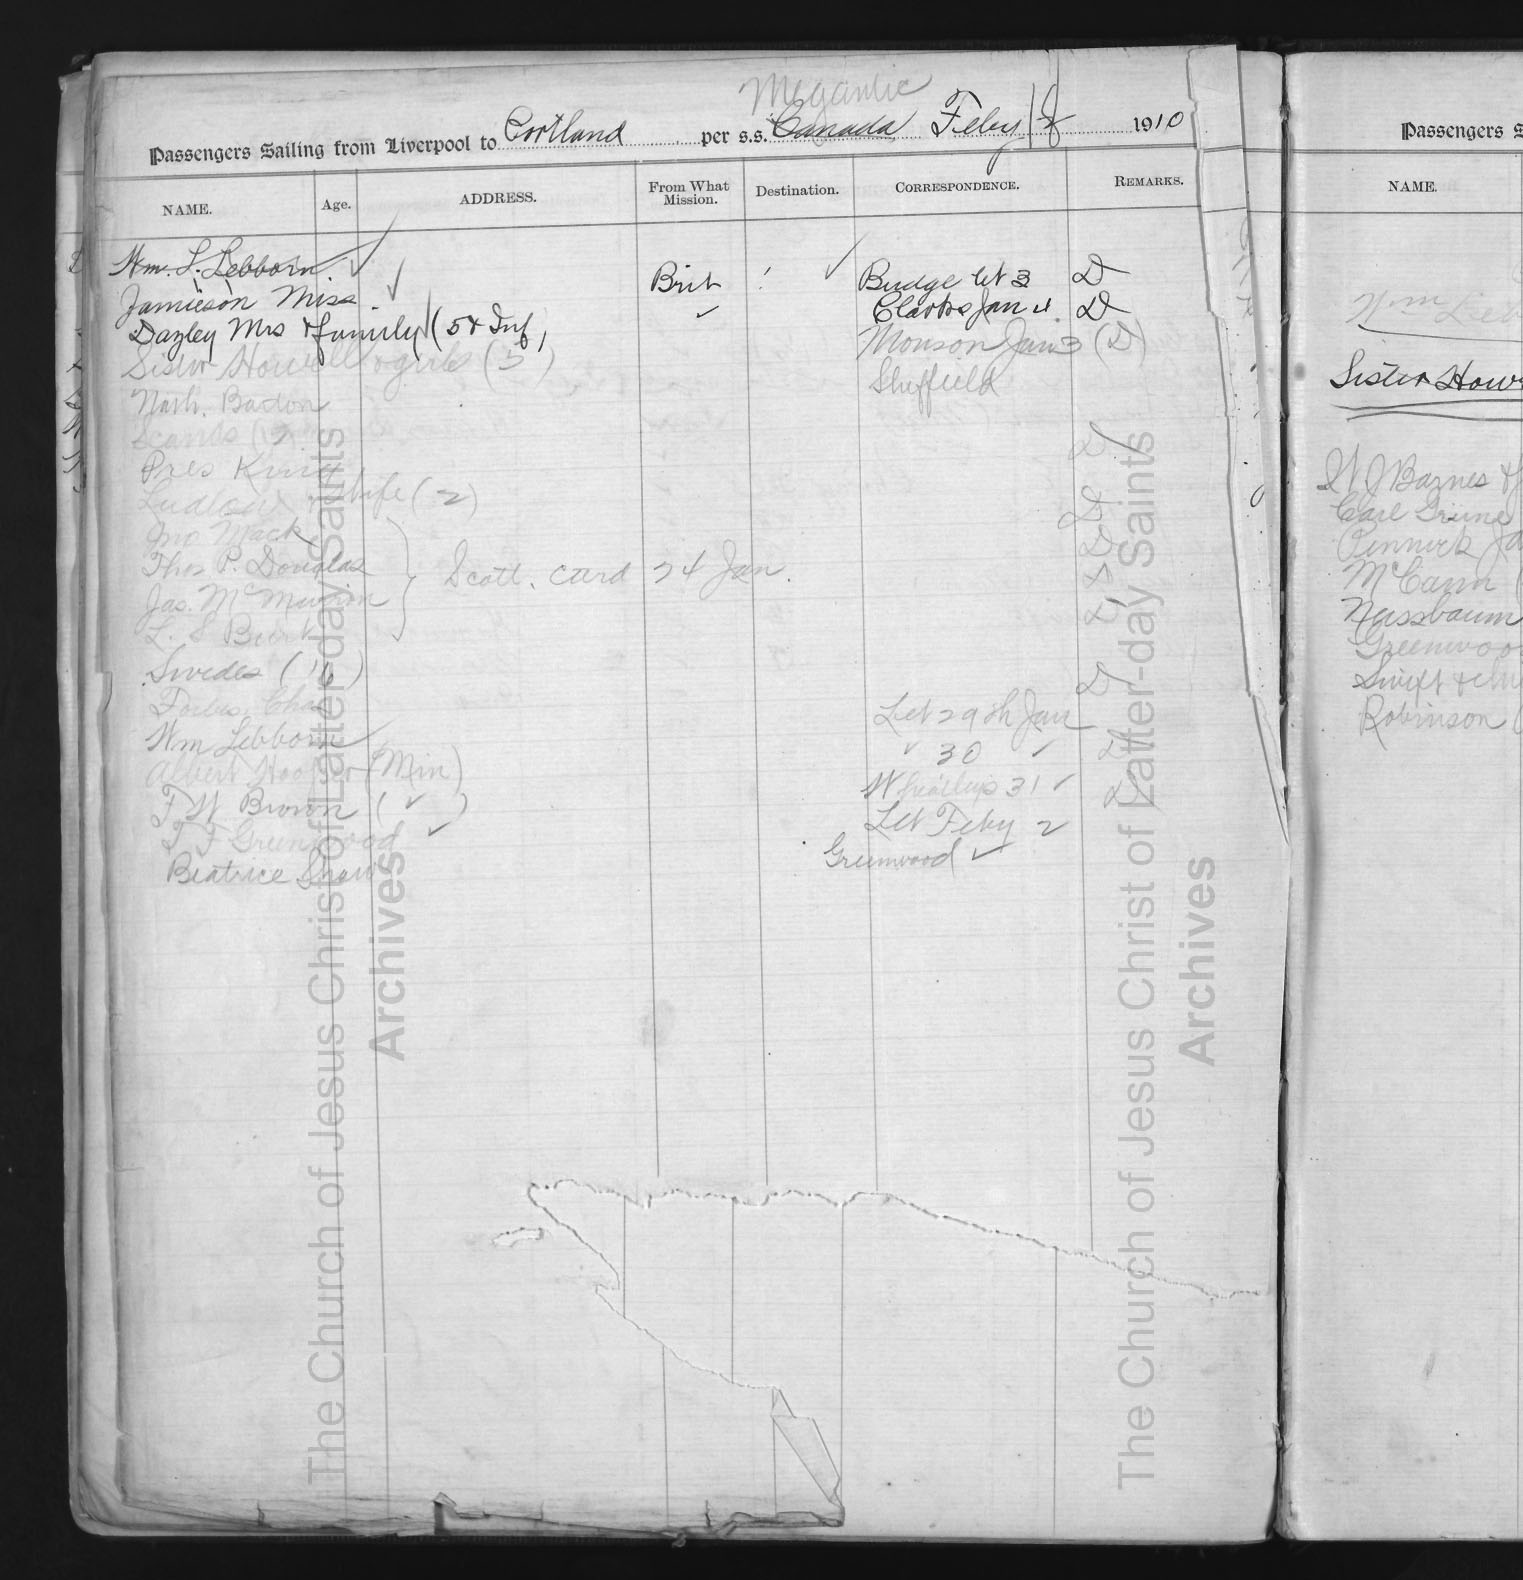 Megantic
Passengers Sailing from Liverpool to Portland per s.s. Canada Feby 1910
NAME. Age. ADDRESS. From What Mission. Destination. CORRESPONDENCE. REMARKS.
Wm. S. Lebborn. ✓ Brit ✓ Budge let 3 D
Jamieson Miss. ✓ ✓ Clarks Jan 4. D
Dazley Mrs & family (5 & Inf) Monson Jan 3 (D)
Sister Howell girls (3) Sheffield
Nath. Badon
Scands (12 D
Pres King
Ludlow & Wife (2) D
Jno Mack D
Thos P. Douglas Scotl. Card 24 Jan.
Jas. McMurrion D
L. S Burt
Swedes (16) D
Forbes, Chas Let 29th Jan
Wm Lebborn ✓ 30 ✓ D
Albert Hooper (Min) 31 ✓
F W. Brown ( ✓ ) Let Feby 2
T F Greenwood ✓ Greenwood ✓
Beatrice Shaw
Passengers S
NAME.
Wm Leb
Sister How
W J Barnes &
Carl Grune
Pennock Ja
McCann (
Nussbaum
Greenwoo
Swift & chi
Robinson (
The Church of Jesus Christ of Latter-day Saints
Archives
The Church of Jesus Christ of Latter-day Saints
Archives